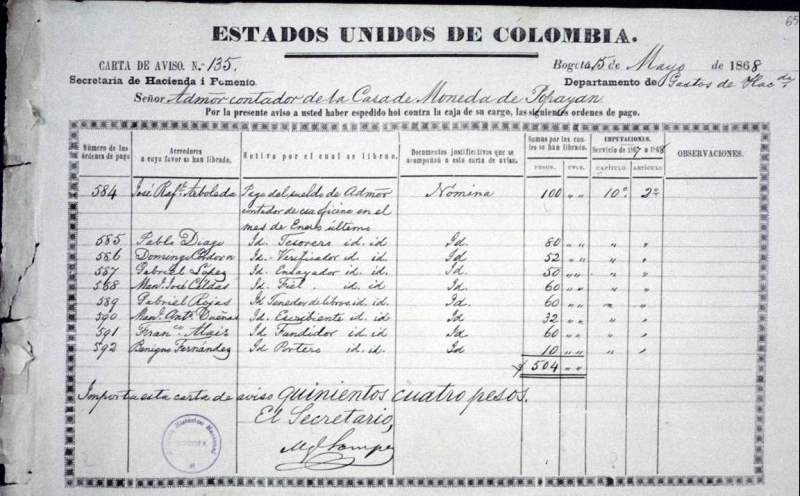 65
ESTADOS UNIDOS DE COLOMBIA.
CARTA DE AVISO. N.º 135. Bogotá, 15 de Mayo de 1868
Secretaria de Hacienda i Fomento. Departamento de Gastos de Hac.da
Señor Admor contador de la Casa de Moneda de Popayan
Por la presente aviso a usted haber espedido hoi contra la caja de su cargo, las siguientes ordenes de pago.
Número de las órdenes de pago Acreedores a cuyo favor se han librado. Motivo por el cual se libran. Documentos justificativos que se acompañan a esta carta de aviso. Sumas por las cuales se han librado. PESOS. CTVS. IMPUTACIONES. Servicio de 1867 a 1868 CAPÍTULO. ARTÍCULO. OBSERVACIONES.
584 José Raf.l Arboleda Pago del sueldo de Admor Nómina 100 " " 10º 2º
contador de esa oficina en el
mes de Enero último
585 Pablo Diago Id. Tesorero id. id Id. 80 " " " "
586 Domingo Córdova Id. Verificador id. id Id. 52 " " " "
587 Gabriel López Id. Ensayador id. id Id. 50 " " " "
588 Man.l José Caldas Id. Fiel id. id Id. 60 " " " "
589 Gabriel Rojas Id Tenedor de libros id. id Id. 60 " " " "
590 Man.l Ant.o Dueñas Id. Escribiente id. id Id. 32 " " " "
591 Fran.co Alais Id. Fundidor id. id Id 60 " " " "
592 Benigno Fernández Id Portero id. id Id 10 " " " "
$ 504 " "
Importa esta carta de aviso quinientos cuatro pesos.
El Secretario,
BOGOTA